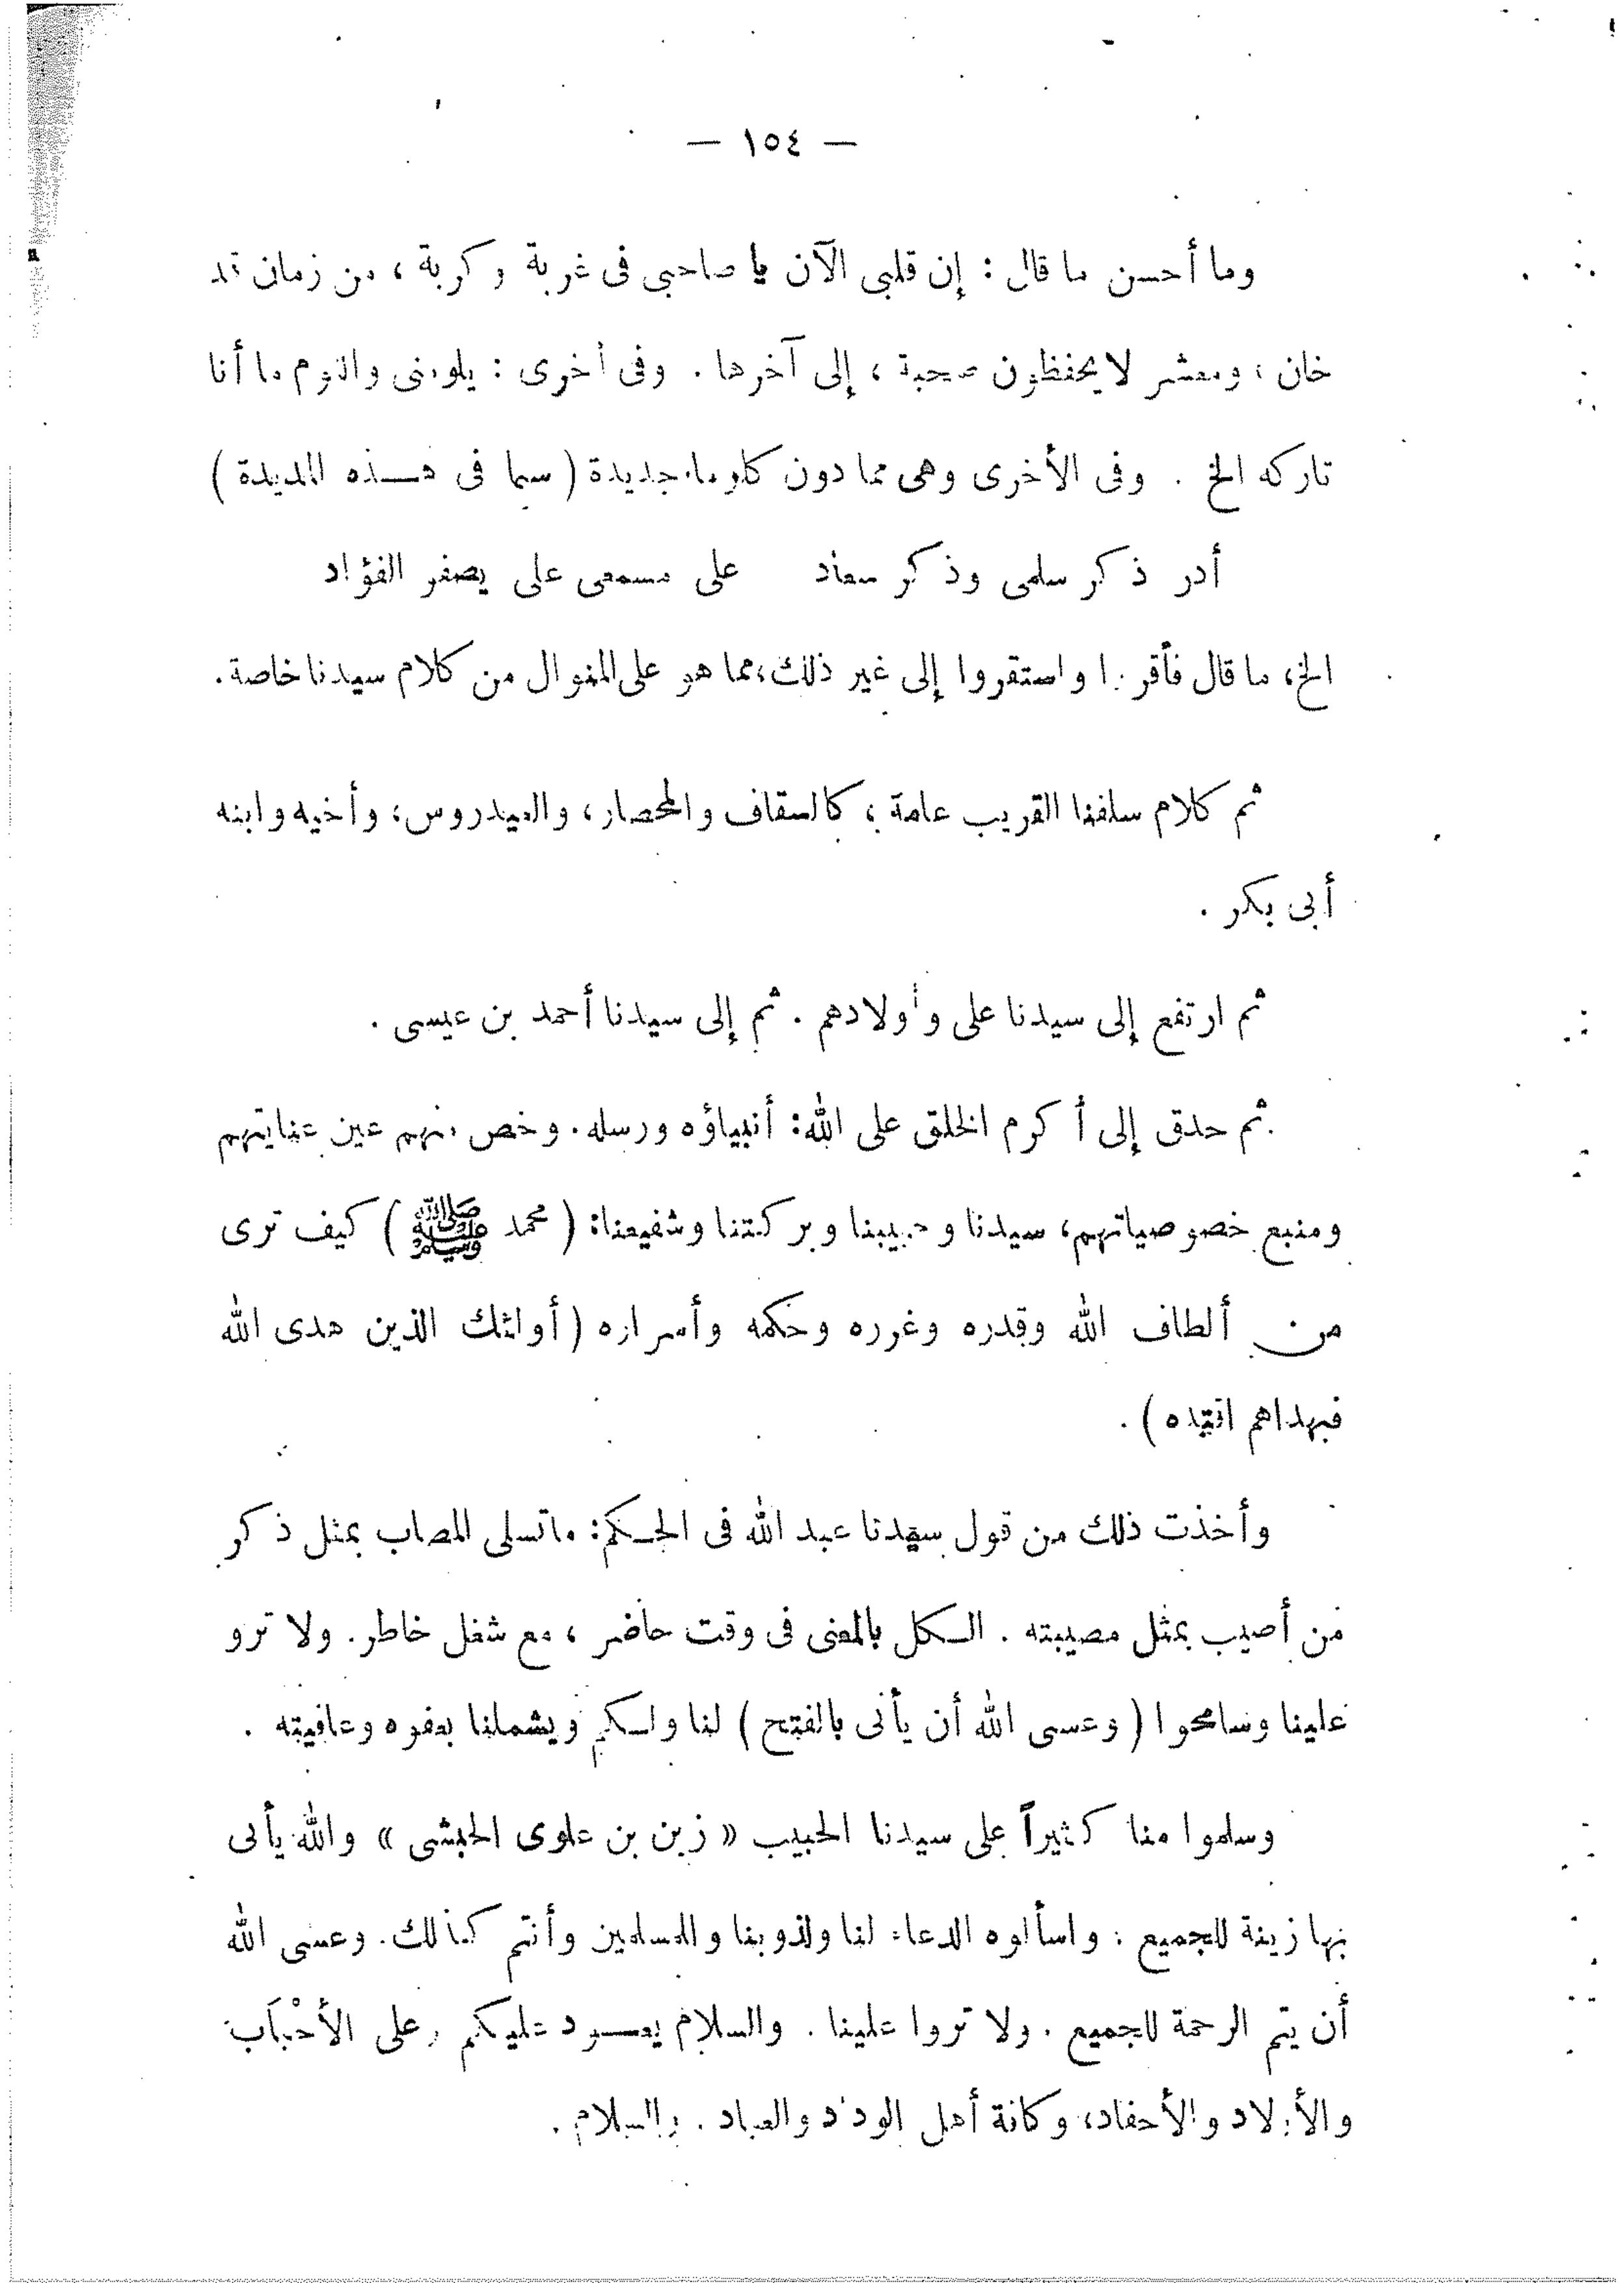 — ١٥٤ —
وما أحسن ما قال : إن قلبى الآن يا صاحبى فى غربة وكربة ، من زمان قد
خان ، ومعشر لا يحفظون صحبة ، إلى آخرها . وفى أخرى : يلومنى واللوم ما أنا
تاركه الخ . وفى الأخرى وهى مما دون جديدة ( سيما فى هـذه المديدة )
أدر ذكر سلمى وذكر سعاد على مسمعى على يصفر الفؤاد
الخ، ما قال فأقروا واستقروا إلى غير ذلك، مما هو على المنوال من كلام سيدنا خاصة .
ثم كلام سلفنا القريب عامة ، كالسقاف والمحضار ، والعيدروس ، وأخيه وابنه
أبى بكر .
ثم ارتفع إلى سيدنا على وأولادهم . ثم إلى سيدنا أحمد بن عيسى .
ثم حدق إلى أكرم الخلق على الله : أنبياؤه ورسله . وخص منهم عين عنايتهم
ومنبع خصوصياتهم، سيدنا وحبيبنا وبركتنا وشفيعنا: ( محمد ﷺ ) كيف ترى
من ألطاف الله وقدره وغرره وحكمه وأسراره ( أولئك الذين هدى الله
فبهداهم اقتده ) .
وأخذت ذلك من قول سيدنا عبد الله فى الحـكم : ماتسلى المصاب بمثل ذكر
من أصيب بمثل مصيبته . الـكل بالمعنى فى وقت حاضر ، مع شغل خاطر . ولا ترو
علينا وسامحوا ( وعسى الله أن يأتى بالفتح ) لنا ولـكم ويشملنا بعفوه وعافيته .
وسلموا منا كثيراً على سيدنا الحبيب « زين بن علوى الحبشى » والله يأتى
بها زينة للجميع : واسألوه الدعاء لنا ولذوينا والمسلمين وأنتم كذلك . وعسى الله
أن يتم الرحمة للجميع . ولا تروا علينا . والسلام يعـود عليكم وعلى الأحْبَاب
والأولاد والأحفاد ، وكافة أهل الوداد والعباد . والسلام .